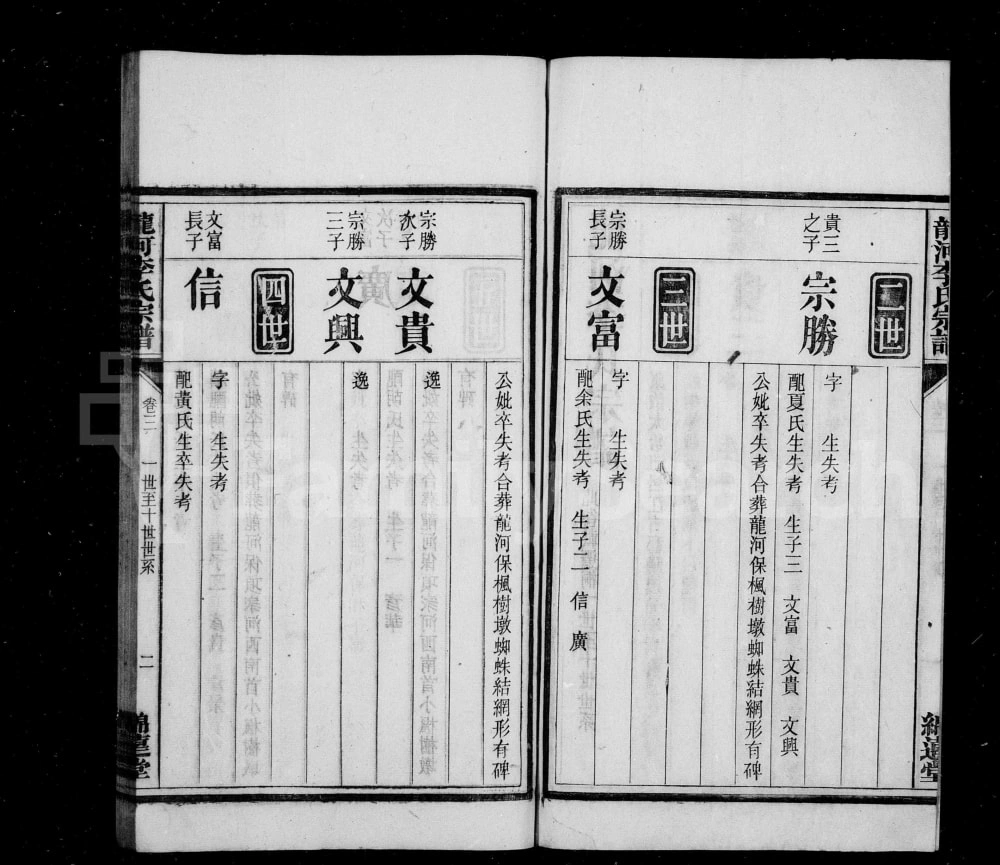 龍河李氏宗譜
二世
貴三
之子
宗勝
字　生失考
配夏氏生失考　生子三　文富　文貴　文興
公妣卒失考合葬龍河保楓樹墩蜘蛛結網形有碑
三世
宗勝
長子
文富
字　生失考
配余氏生失考　生子二　信　廣
公妣卒失考合葬龍河保楓樹墩蜘蛛結網形有碑
宗勝
次子
文貴
逸
宗勝
三子
文興
逸
四世
文富
長子
信
字　生失考
配黃氏生卒失考
龍河李氏宗譜
卷三
一世至十世世系
二